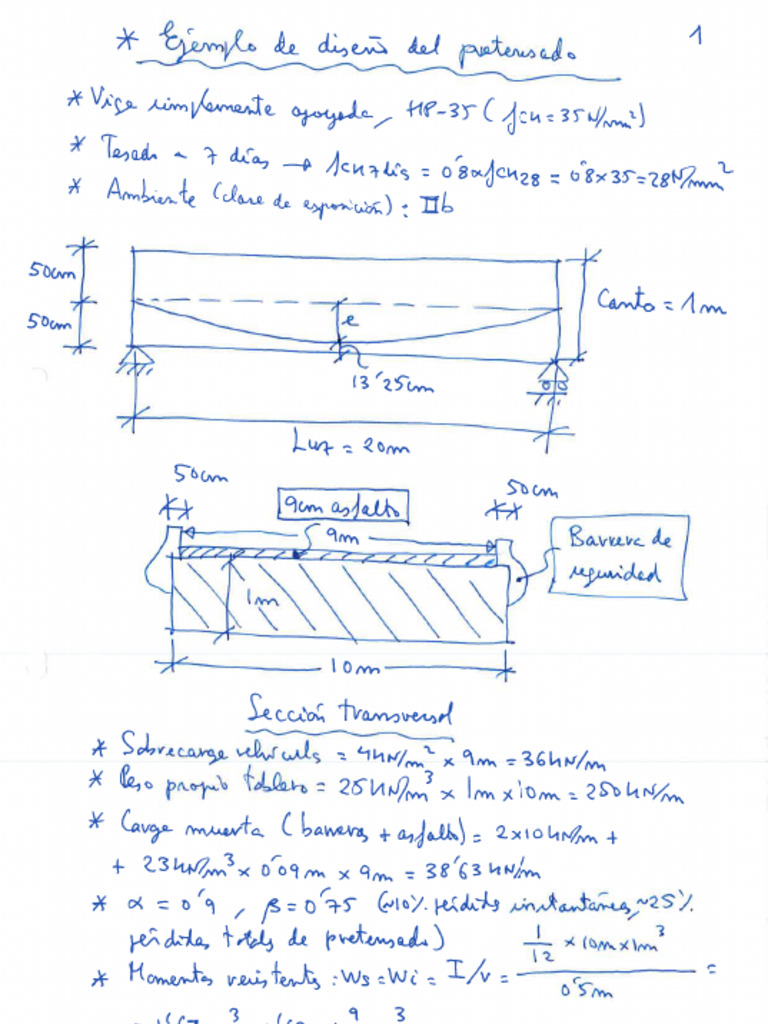 1
* Ejemplo de diseño del pretensado
* Viga simplemente apoyada, HP-35 (fck = 35 N/mm²)
* Tesado a 7 días → fck 7 días = 0'8 x fck28 = 0'8 x 35 = 28 N/mm²
* Ambiente (clase de exposición): IIb
50cm
50cm
e
Canto = 1m
13'25cm
Luz = 20m
50cm
9cm asfalto
50cm
9m
Barrera de
seguridad
1m
10m
Sección transversal
* Sobrecarga vehículos = 4 kN/m² x 9m = 36 kN/m
* Peso propio tablero = 25 kN/m³ x 1m x 10m = 250 kN/m
* Carga muerta (barreras + asfalto) = 2x10 kN/m +
+ 23 kN/m³ x 0'09m x 9m = 38'63 kN/m
* α = 0'9 , β = 0'75 (~10% pérdidas instantáneas, ~25%
pérdidas totales de pretensado)
* Momentos resistentes: Ws = Wi = I/v = 1/12 x 10m x 1m³ / 0'5m =